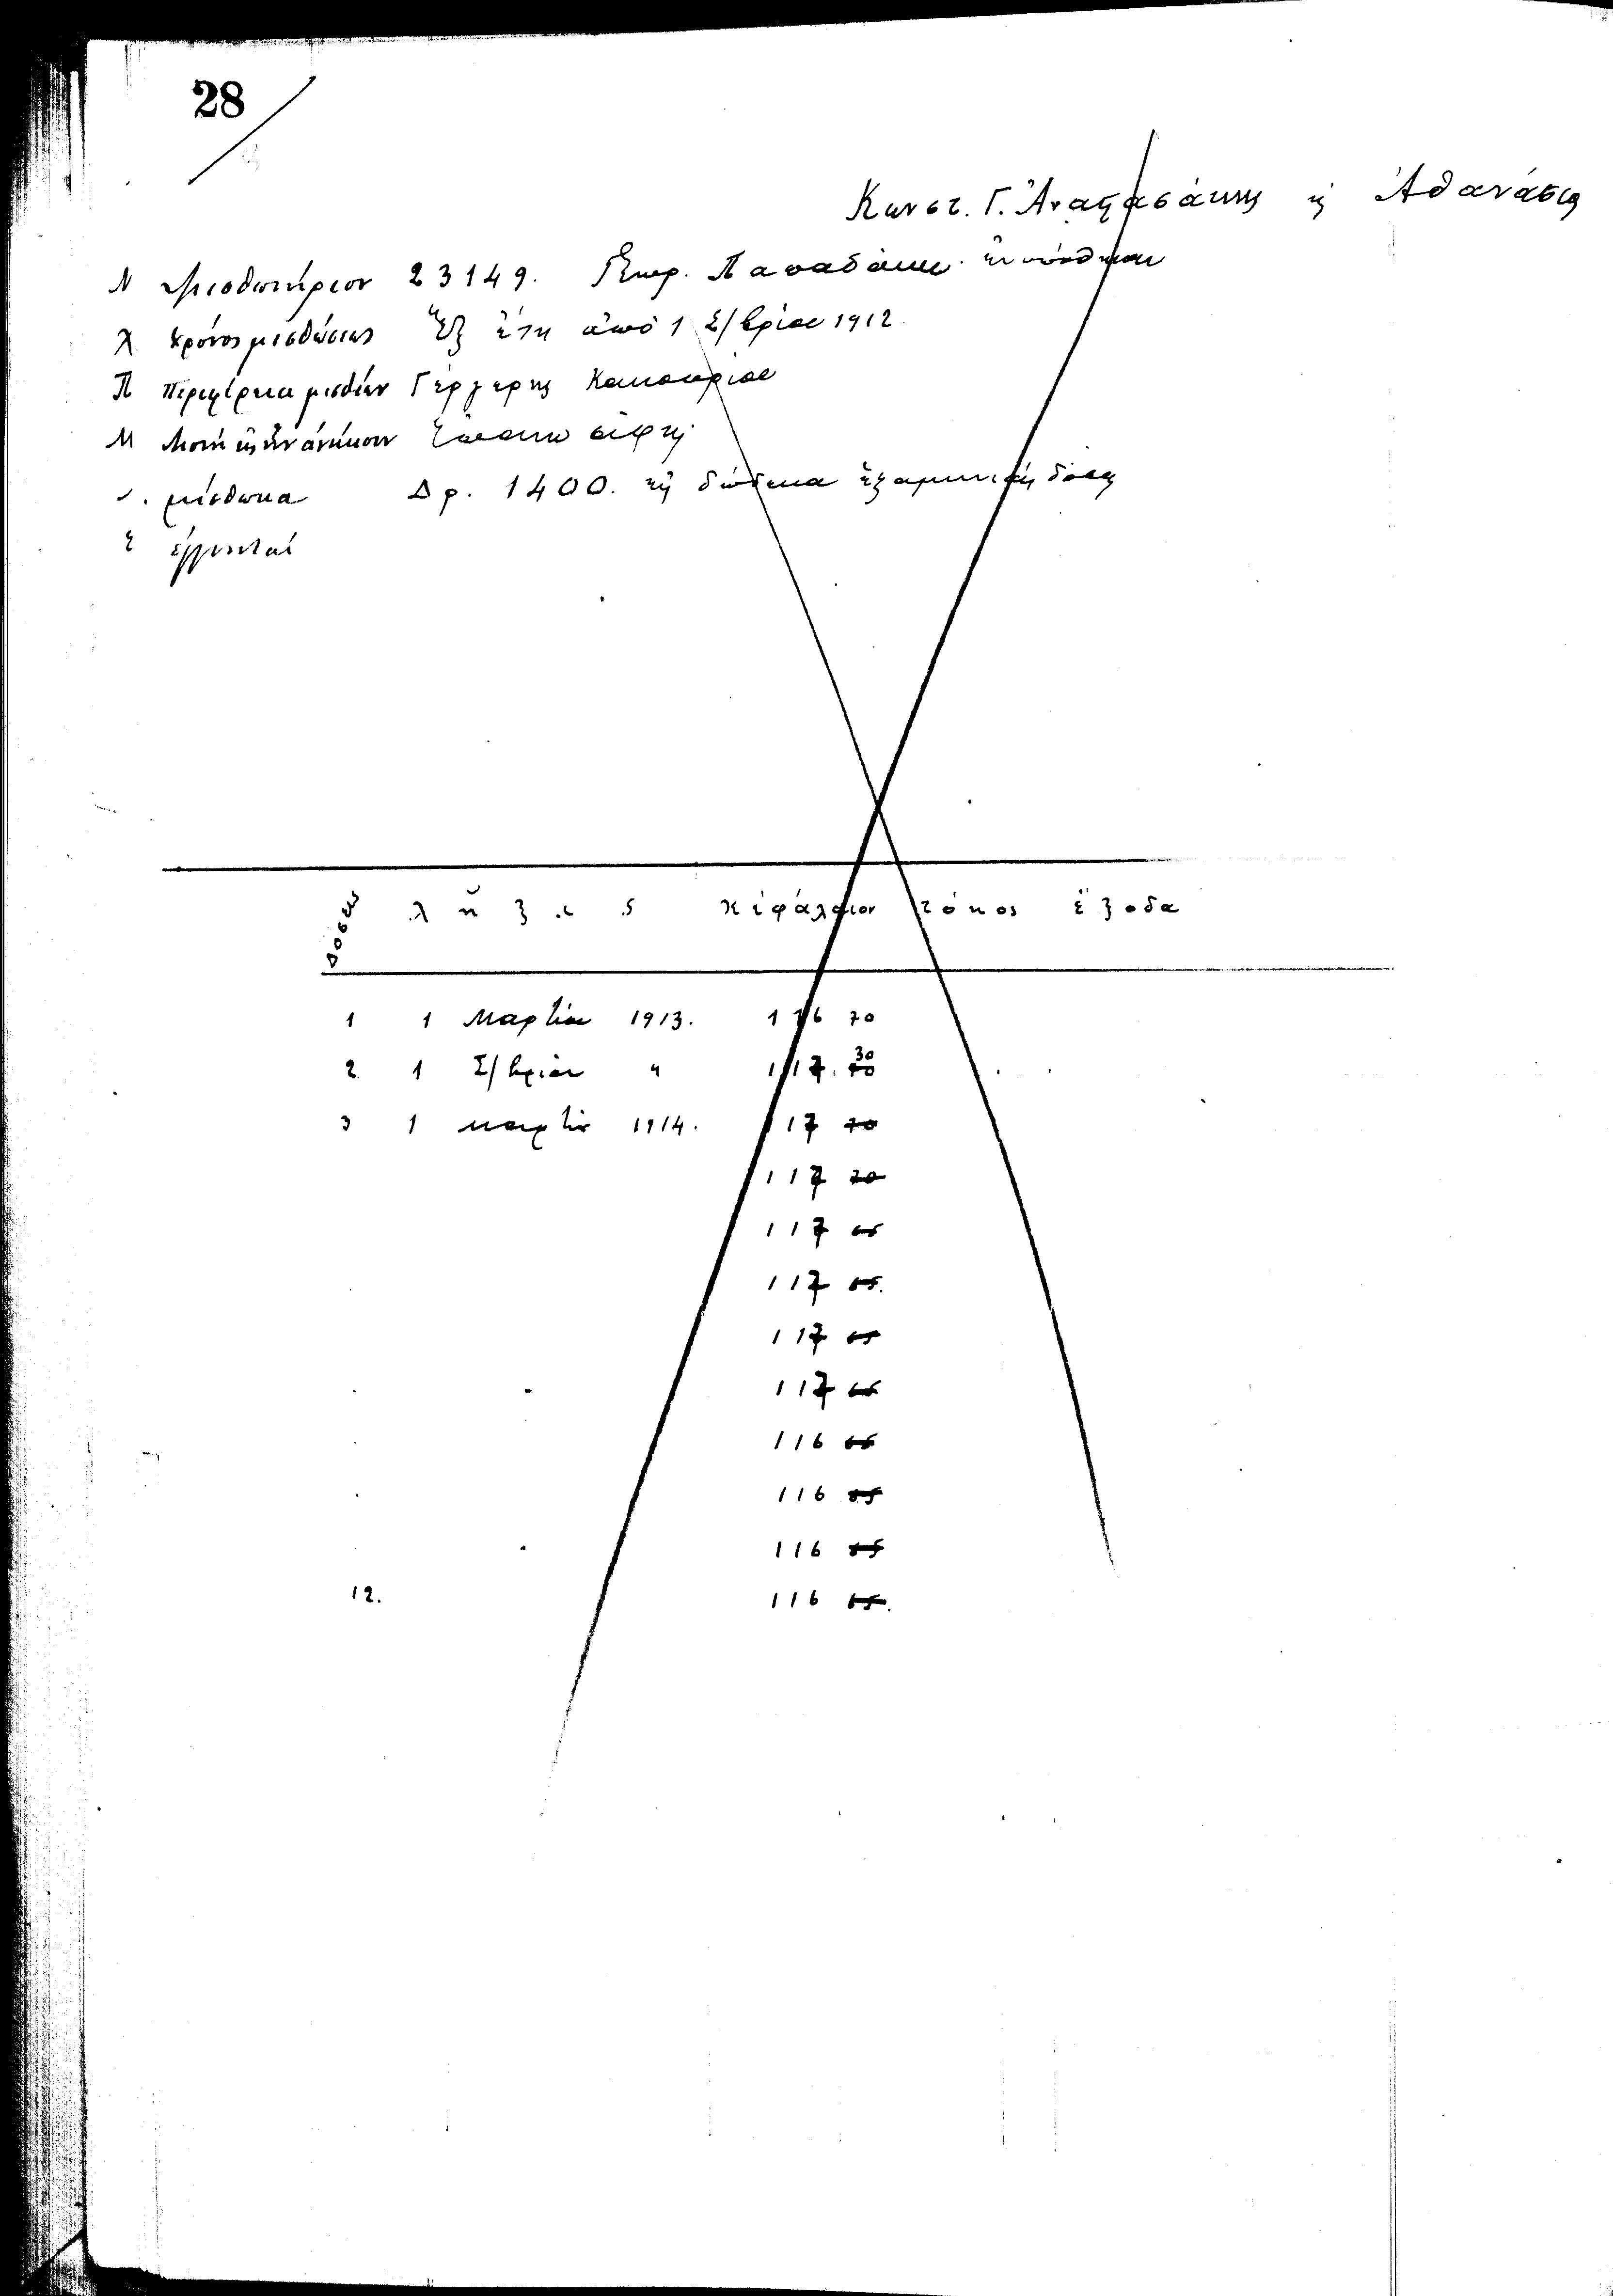 28
Κωνστ. Γ. Ἀναστασάκης ἐξ Ἀθανάτους
Μ Μισθωτήριον 23149. Γεωρ. Παπαδάκι
Χ Χρόνος μισθώσεως Ἕξ ἔτη ἀπὸ 1 Σ/βρίου 1912.
Π Περιφέρεια μισθίων Γέργερης Καινουρίου
Μ Μονὴ εἰς ἣν ἀνήκουν
μίσθωμα Δρ. 1400. εἰς δώδεκα ἑξαμηνιαίας δόσεις
ἐ ἐγγυηταί
Δόσεις λῆξις κεφάλαιον τόκος ἔξοδα
1 1 Μαρτίου 1913. 116 70
2 1 Σ/βρίου " 117. 70 30
3 1 Μαρτίου 1914. 117 70
117 70
117 65
117 65.
117 65
117 65
116 65
116 65
116 65
12. 116 65.